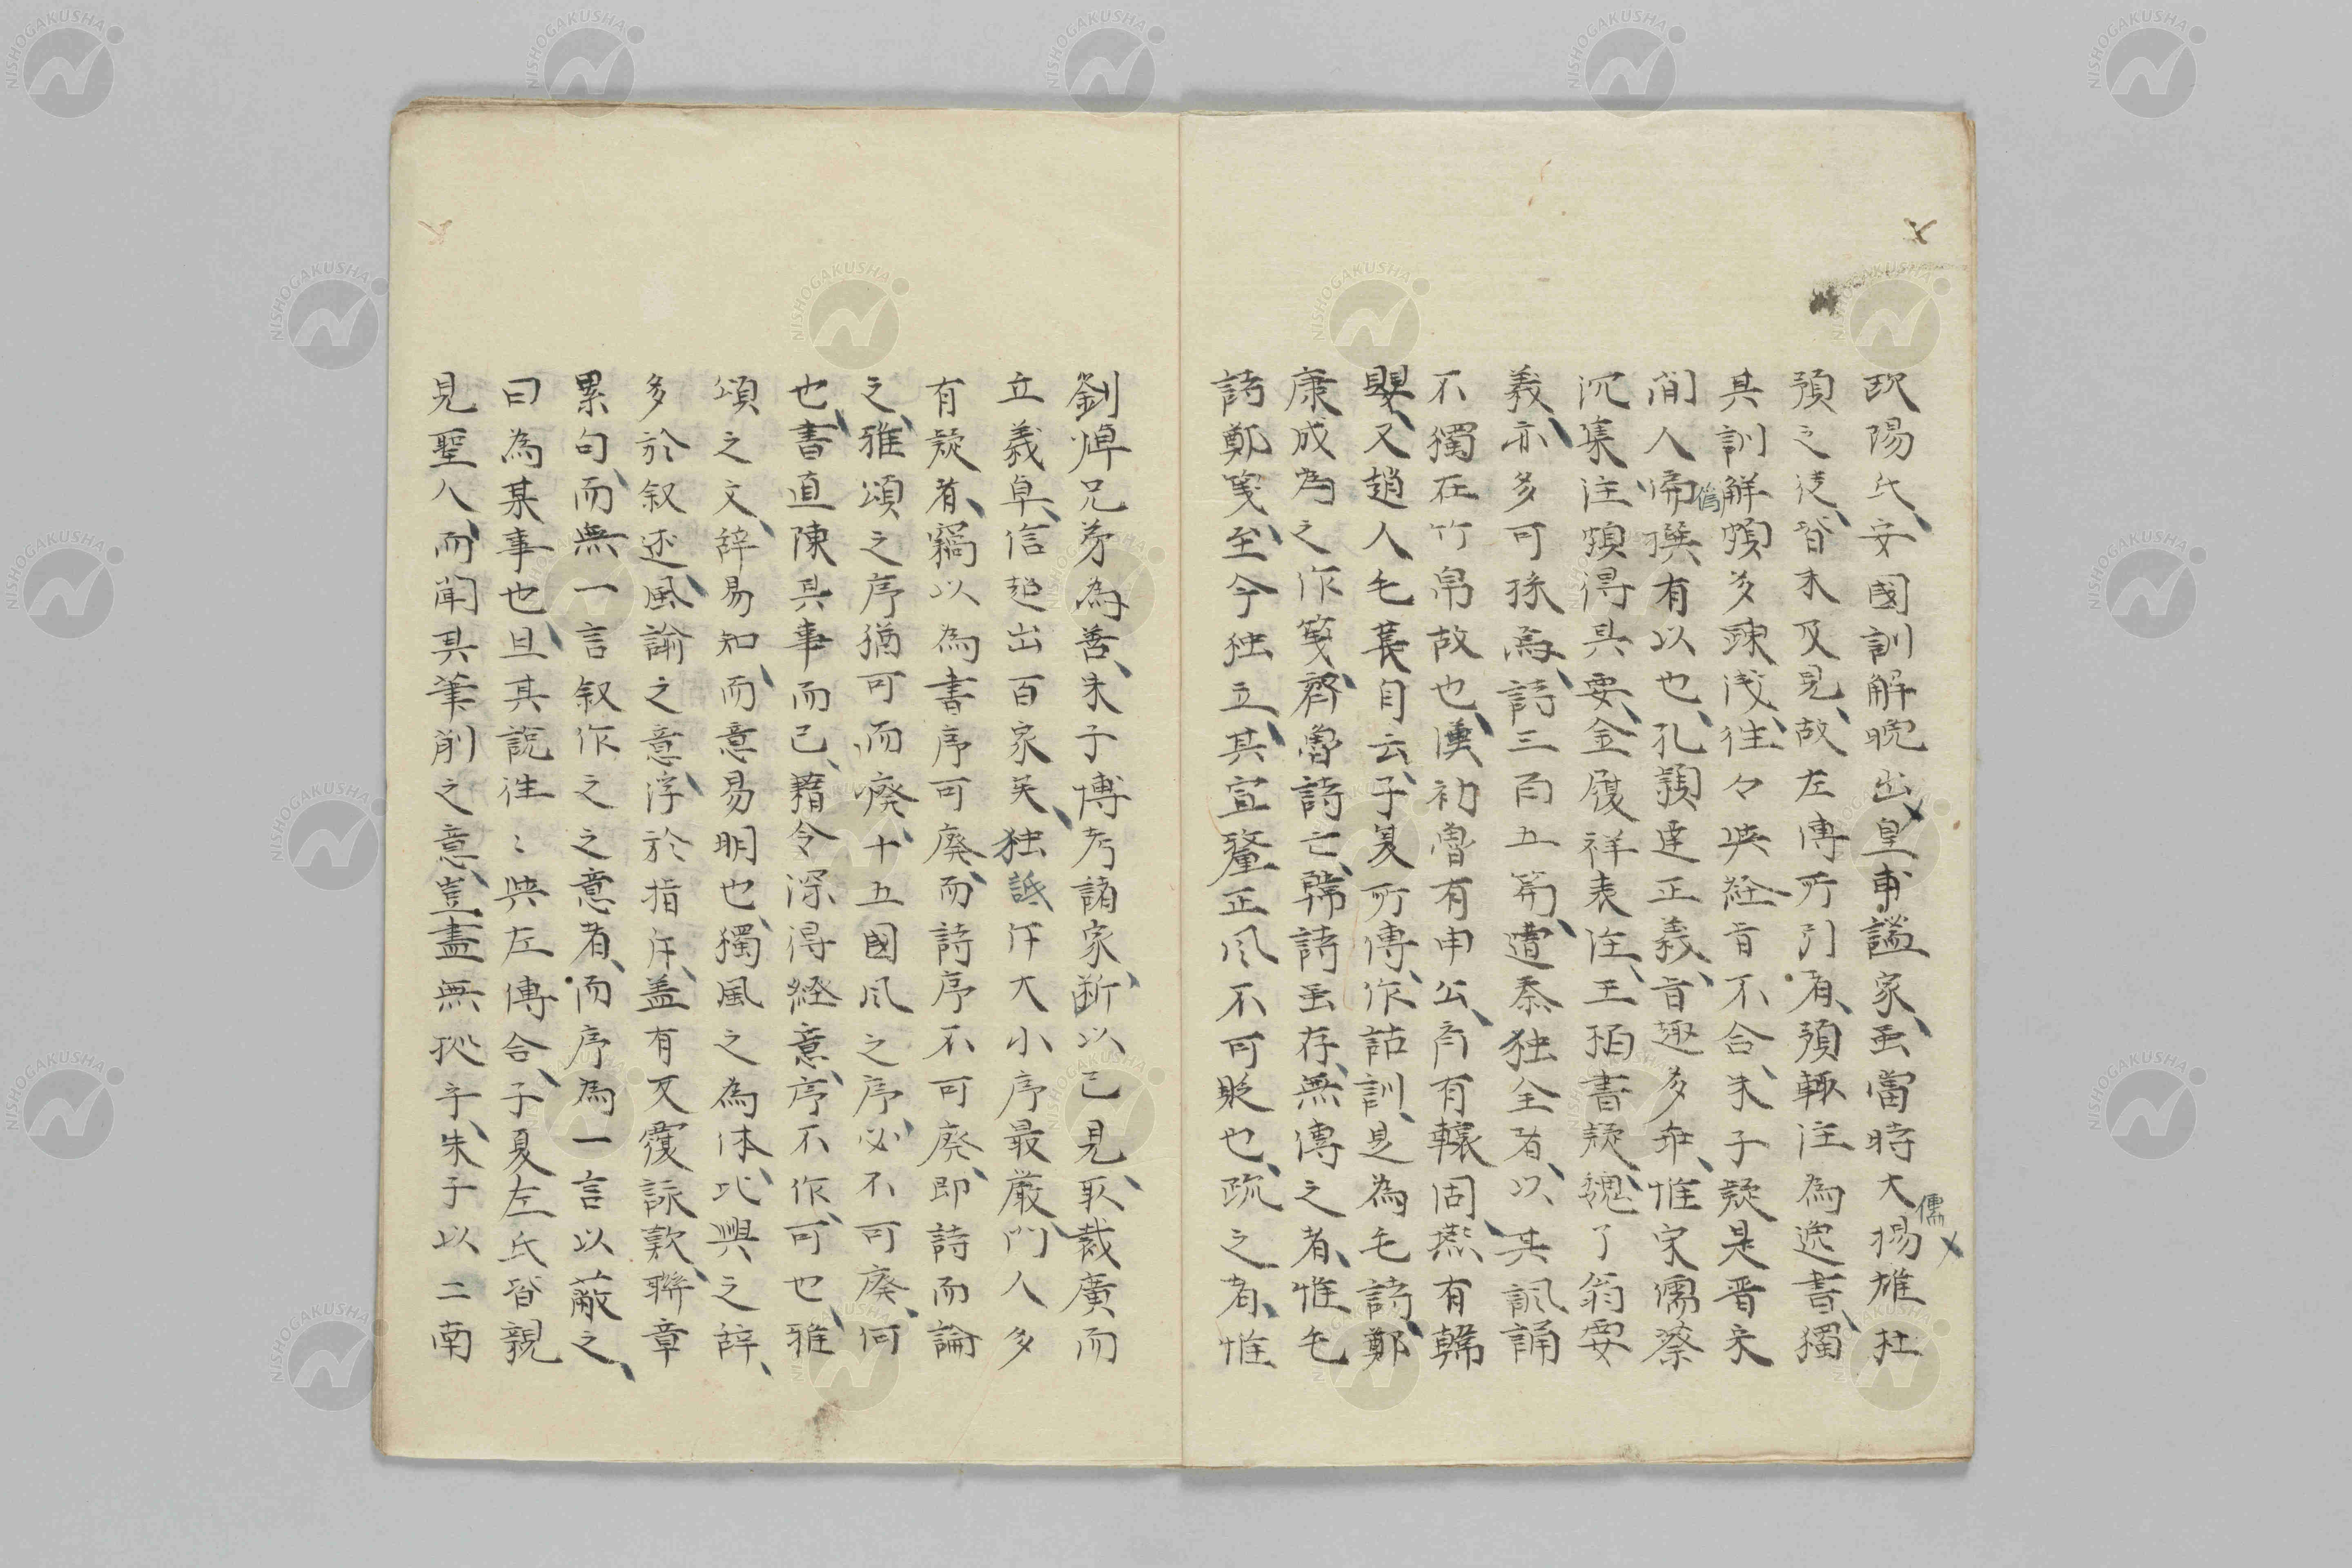 欧陽氏、安國訓解晚出、皇甫謐家、虽當時大儒揚雄杜
預之徒、皆未及見、故左傳所引者、預輒注為逸書、獨
其訓解頗多疎浅、往々與経旨不合、朱子疑是晋宋
間人偽撰有以也、孔頴達正義、旨趣多乖、惟宋儒蔡
沉集注、頗得其要、金履祥表注、王柏書疑、魏了翁要
義、亦多可採焉、詩三百五篇、遭秦独全者、以其諷誦
不獨在竹帛故也、漢初魯有申公、齐有轅固、燕有韓
嬰、又趙人毛萇自云、子夏所傳、作詁訓、是為毛詩、鄭
康成為之作箋、齊魯詩亡、韓詩虽存、無傳之者、惟毛
詩鄭箋、至今独立、其宣釐正风不可貶也、疏之者、惟
劉焯兄弟為善、朱子博考諸家、断以己見、取裁廣而
立義卓、信超出百家矣、独詆斥大小序最嚴、門人多
有疑者、竊以為書序可廃、而詩序不可廃、即詩而論
之、雅頌之序猶可而廃、十五國风之序、必不可廃、何
也、書直陳其事而已、藉令深得経意、序不作、可也、雅
頌之文、辞易知、而意易明也、獨風之為体、比興之辞、
多於叙述、風諭之意、浮於指斥、盖有反覆詠歎、聯章
累句、而無一言叙作之之意者、而序為一言以蔽之、
曰為某事也、且其說徃〻與左傳合、子夏左氏皆親
見聖人、而聞其筆削之意、豈盡無拠乎、朱子以二南
NISHOGAKUSHA